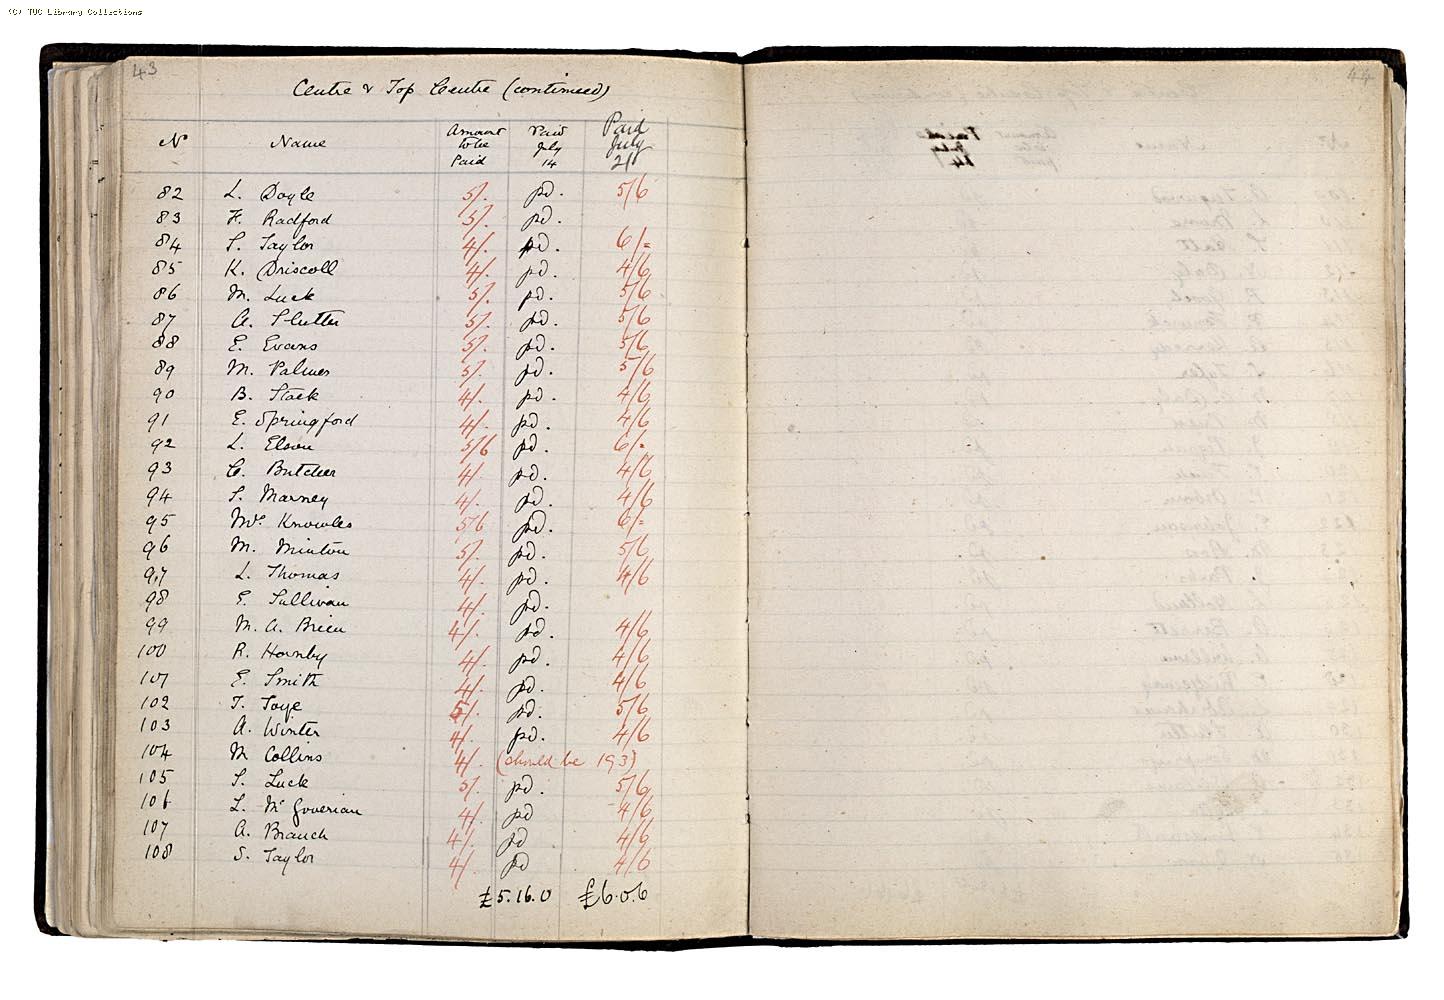 (C) TUC Library Collections
43
Centre & Top Centre (continued)
No Name Amount to be Paid Paid July 14 Paid July 21
82 L. Doyle 5/. pd. 5/6
83 F. Radford 5/. pd.
84 S. Taylor 4/. pd. 6/=
85 K. Driscoll 4/. pd. 4/6
86 M. Luck 5/. pd. 5/6
87 A. Slutter 5/. pd. 5/6
88 E. Evans 5/. pd. 5/6
89 M. Palmer 5/. pd. 5/6
90 B. Stack 4/. pd. 4/6
91 E. Springford 4/. pd. 4/6
92 L. Elson 5/6 pd. 6/=
93 C. Butcher 4/. pd. 4/6
94 S. Marney 4/. pd. 4/6
95 Mrs Knowles 5/6 pd. 6/=
96 M. Minton 5/. pd. 5/6
97 L. Thomas 4/. pd. 4/6
98 E. Sullivan 4/. pd.
99 M. A. Brien 4/. pd. 4/6
100 R. Hornby 4/. pd. 4/6
101 E. Smith 4/. pd. 4/6
102 T. Toye 5/. pd. 5/6
103 A. Winter 4/. pd. 4/6
104 M Collins 4/. (should be 193)
105 S. Luck 5/. pd. 5/6
106 L. Mc Goverian 4/. pd 4/6
107 A. Branch 4/. pd 4/6
108 S. Taylor 4/. pd 4/6
£5.16.0 £6.0.6
44